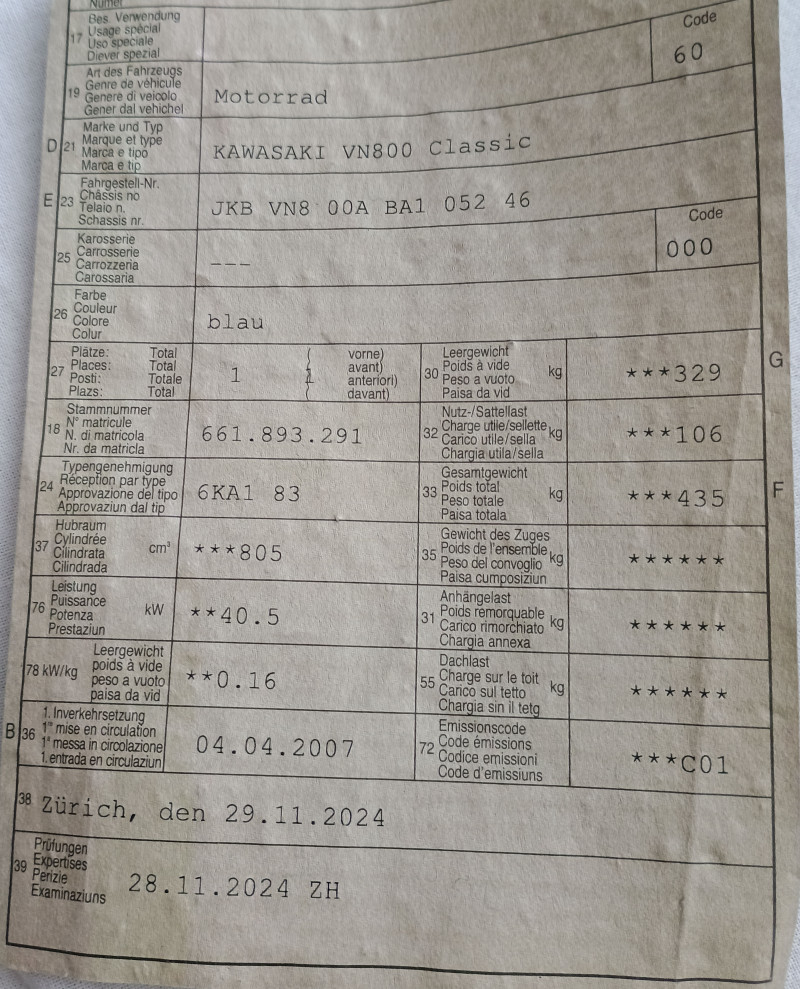 Numer
17 Bes. Verwendung
Usage spécial
Uso speciale
Diever spezial
Code
60
19 Art des Fahrzeugs
Genre de véhicule
Genere di veicolo
Gener dal vehichel
Motorrad
D 21 Marke und Typ
Marque et type
Marca e tipo
Marca e tip
KAWASAKI VN800 Classic
E 23 Fahrgestell-Nr.
Châssis no
Telaio n.
Schassis nr.
JKB VN8 00A BA1 052 46
25 Karosserie
Carrosserie
Carrozzeria
Carossaria
---
Code
000
26 Farbe
Couleur
Colore
Colur
blau
27 Plätze: Total
Places: Total
Posti: Totale
Plazs: Total
1
vorne)
avant)
anteriori)
davant)
30 Leergewicht
Poids à vide
Peso a vuoto
Paisa da vid
kg
***329
G
18 Stammnummer
N° matricule
N. di matricola
Nr. da matricla
661.893.291
32 Nutz-/Sattellast
Charge utile/sellette
Carico utile/sella
Chargia utila/sella
kg
***106
24 Typengenehmigung
Réception par type
Approvazione del tipo
Approvaziun dal tip
6KA1 83
33 Gesamtgewicht
Poids total
Peso totale
Paisa totala
kg
***435
F
37 Hubraum
Cylindrée
Cilindrata
Cilindrada
cm³
***805
35 Gewicht des Zuges
Poids de l'ensemble
Peso del convoglio
Paisa cumposiziun
kg
******
76 Leistung
Puissance
Potenza
Prestaziun
kW
**40.5
31 Anhängelast
Poids remorquable
Carico rimorchiato
Chargia annexa
kg
******
78 kW/kg
Leergewicht
poids à vide
peso a vuoto
paisa da vid
**0.16
55 Dachlast
Charge sur le toit
Carico sul tetto
Chargia sin il tetg
kg
******
B 36 1. Inverkehrsetzung
1re mise en circulation
1a messa in circolazione
1. entrada en circulaziun
04.04.2007
72 Emissionscode
Code émissions
Codice emissioni
Code d'emissiuns
***C01
38 Zürich, den 29.11.2024
39 Prüfungen
Expertises
Perizie
Examinaziuns
28.11.2024 ZH